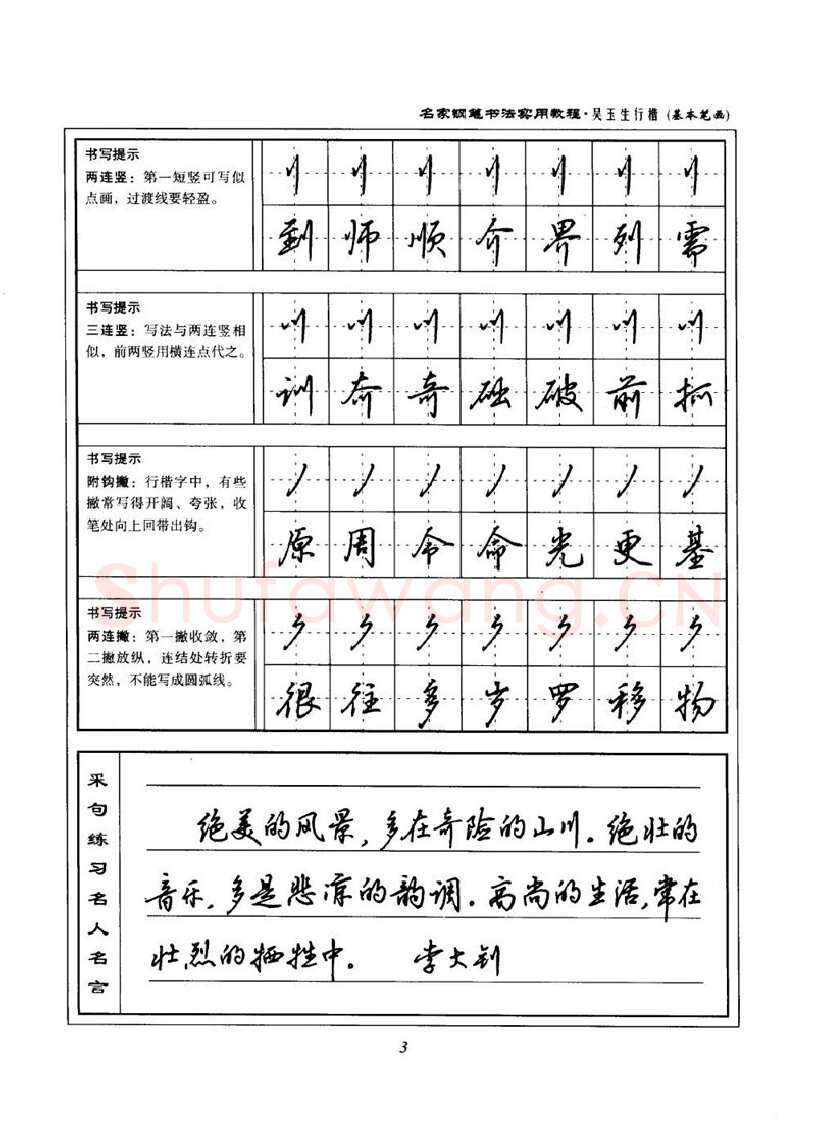 名家钢笔书法实用教程·吴玉生行楷（基本笔画）
书写提示
两连竖：第一短竖可写似
点画，过渡线要轻盈。
到师顺介界列需
书写提示
三连竖：写法与两连竖相
似，前两竖用横连点代之。
训奔奇础破前抓
书写提示
附钩撇：行楷字中，有些
撇常写得开阔、夸张，收
笔处向上回带出钩。
原周令命光更基
Shufawang.CN
书写提示
两连撇：第一撇收敛，第
二撇放纵，连结处转折要
突然，不能写成圆弧线。
很往多岁罗移物
采句练习名人名言
绝美的风景，多在奇险的山川。绝壮的
音乐，多是悲凉的韵调。高尚的生活，常在
壮烈的牺牲中。 李大钊
3